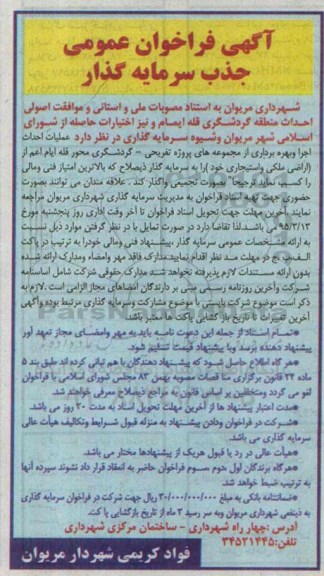 آگهی فراخوان عمومی
جذب سرمایه گذار
شهرداری مریوان به استناد مصوبات ملی و استانی و موافقت اصولی
احداث منطقه گردشگری قله ایمام و نیز اختیارات حاصله از شورای
اسلامی شهر مریوان وشیوه سرمایه گذاری در نظر دارد عملیات احداث
اجرا وبهره برداری از مجموعه های پروژه تفریحی - گردشگری محور قله ایام اعم از
(اراضی ملکی واستیجاری خود )را به سرمایه گذار ذیصلاح که بالاترین امتیاز فنی ومالی
را کسب نماید ترجیحا" بصورت تجمیعی واگذار کند . علاقه مندان می توانند بصورت
حضوری جهت دریافت اسناد فراخوان به مدیریت سرمایه گذاری شهرداری مریوان مراجعه
نمایند .آخرین مهلت جهت تحویل اسناد فراخوان تا آخر وقت اداری روز پنجشنبه مورخ
۹۵/۳/۱۳ می باشد.لذا تقاضا دارد در صورت تمایل با در نظر گرفتن موارد ذیل نسبت
به ارائه مشخصات عمومی سرمایه گذار ،پیشنهاد فنی ومالی خودرا به ترتیب در پاکت
الف،ب،ج در مهلت مد نظر اقدام نمایید.مدارک فاقد مهر وامضاء ومدارک ارائه شده
بدون ارائه مستندات لازم پذیرفته نخواهد شد. مدارک حقوقی شرکت شامل اساسنامه
شرکت وآخرین روزنامه رسمی مبنی بر دارندگان امضاهای مجاز الزامی است .لازم به
ذکر است موضوع شرکت بایستی با موضوع مشارکت وسرمایه گذاری مرتبط بوده وآگهی
آخرین تغییرات تا تاریخ باز گشایی پاکت ها معتبر باشد.
*تمام اسناد از جمله این دعوت نامه باید به مهر وامضای مجاز تعهد آور
پیشنهاد دهنده برسد وبا پیشنهاد قیمت تسلیم شود.
*هر گاه اطلاع حاصل شود که پیشنهاد دهندگان با هم تبانی کرده اند طبق بند ۵
ماده ۲۴ قانون برگزاری مناقصات مصوبه بهمن ۸۳ مجلس شورای اسلامی با فراخوان
لغو می گردد ومتخلفین بر اساس قانون به مراجع ذیصلاح معرفی خواهند شد.
*مدت اعتبار پیشنهاد ها از آخرین مهلت تحویل اسناد به مدت ۳۰ روز می باشد.
*شرکت در فراخوان ودادن پیشنهاد به منزله قبول شرایط وتکالیف هیأت عالی
سرمایه گذاری می باشد.
*هیأت عالی در رد یا قبول هریک از پیشنهادها مختار می باشد.
*هرگاه برندگان اول دوم سوم فراخوان حاضر به انعقاد قرار داد نشوند سپرده آنها
به ترتیب ضبط خواهد شد.
*ضمانتنامه بانکی به مبلغ ۳۰/۰۰۰/۰۰۰/۰۰۰ ریال جهت شرکت در فراخوان سرمایه گذاری
به ذینفعی شهرداری مریوان وبه سر رسید ۳ ماه از تاریخ بازگشایی پاکت.
آدرس :چهار راه شهرداری - ساختمان مرکزی شهرداری
تلفن:۳۴۵۲۱۴۴۵
فواد کریمی شهردار مریوان